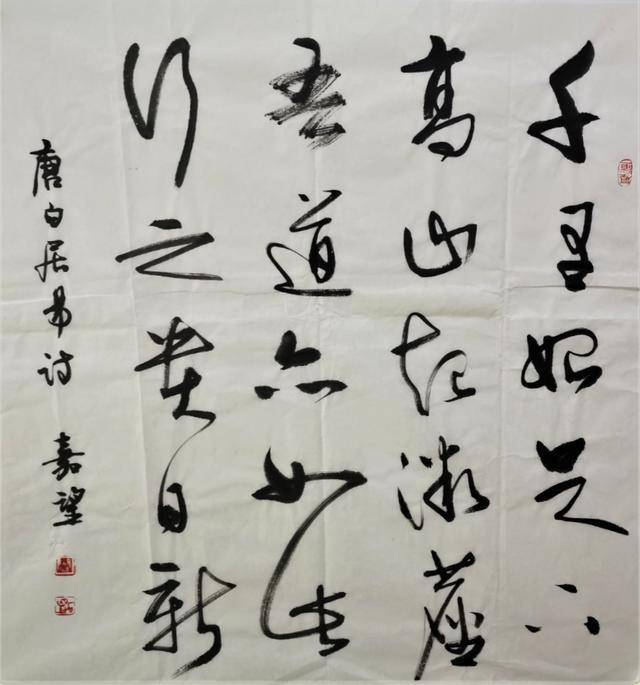 千里始足下
高山起微塵
吾道亦如此
行之貴日新
唐白居易诗 嘉望